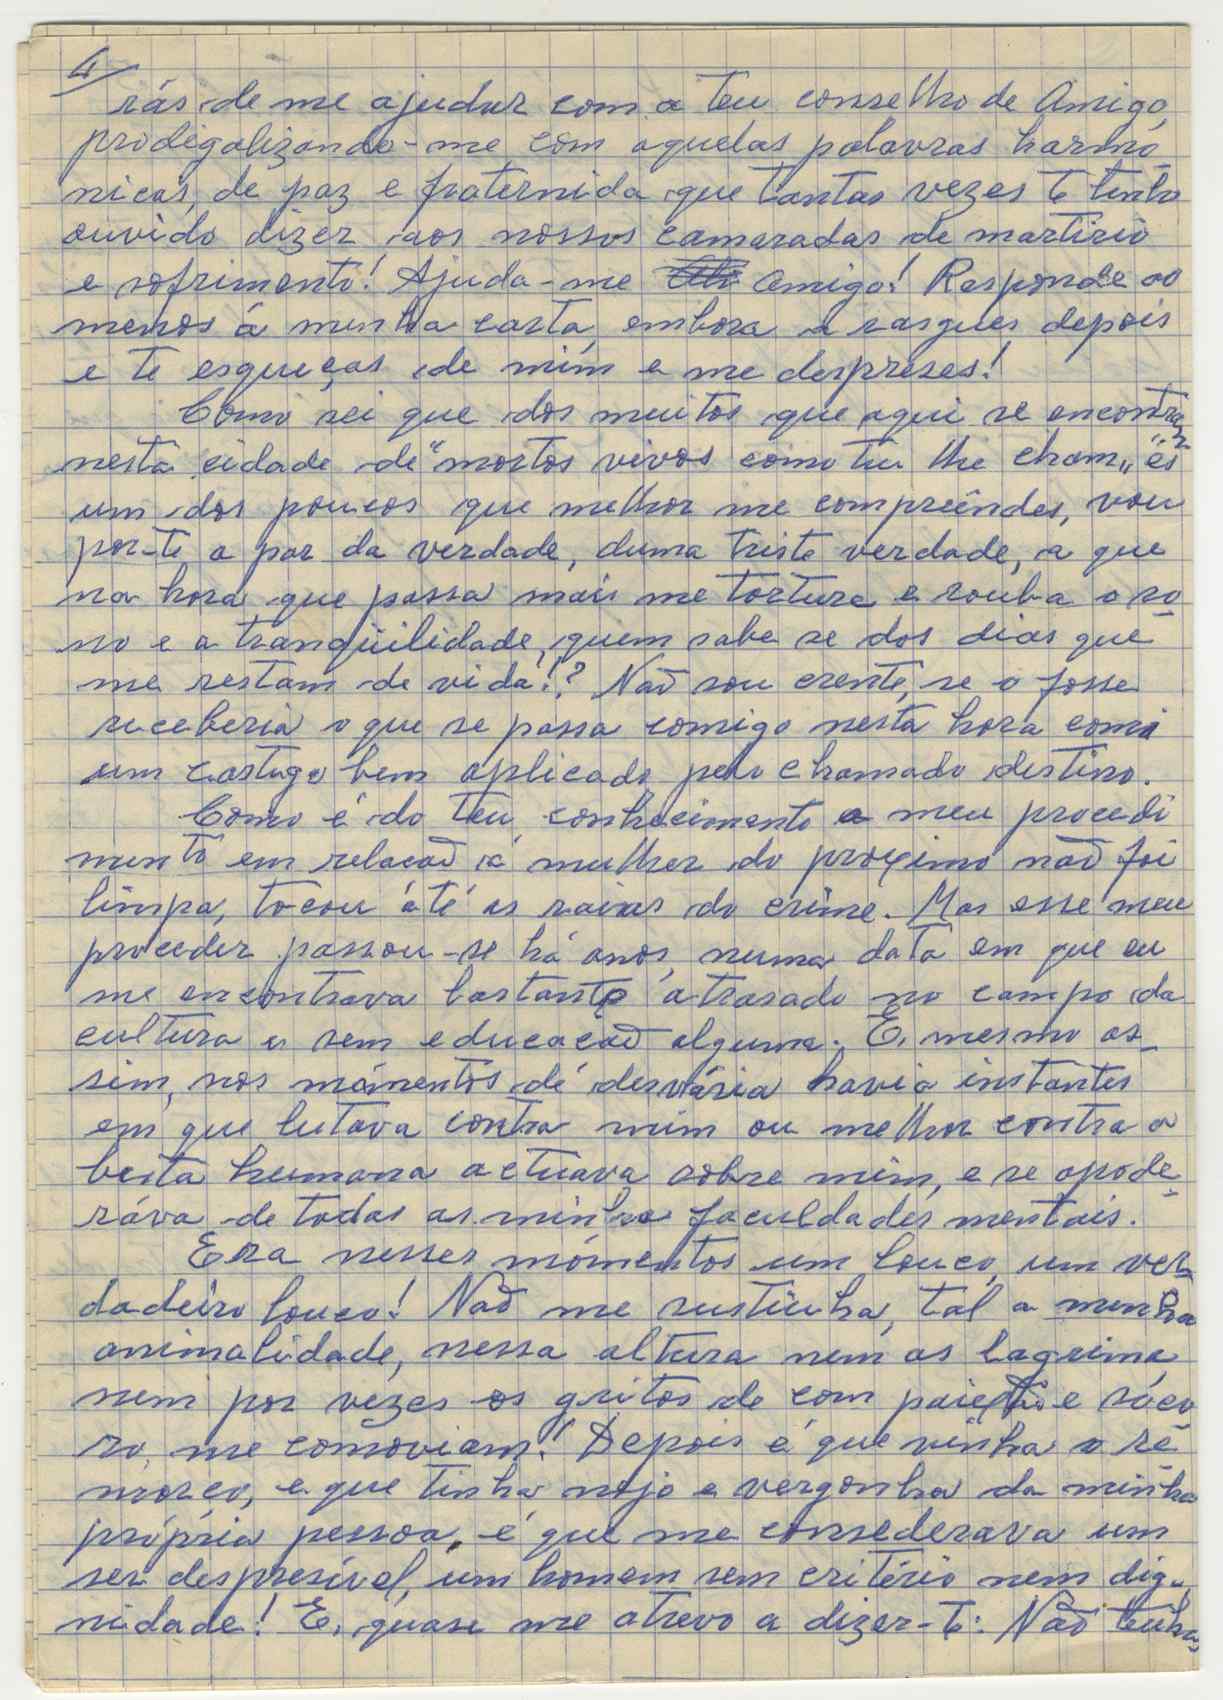 4
rás de me ajudar com o teu conselho de Amigo,
prodigalizando-me com aquelas palavras harmó
nicas, de paz e fraternida que tantas vezes te tenho
ouvido dizer aos nossos camaradas de martirio
e sofrimento! Ajuda-me Amigo! Responde ao
menos á minha carta, embora a rasgues depois
e te esqueças de mim e me despreses!
Como sei que dos muitos que aqui se encontram
nesta cidade de "mortos vivos como tu lhe cham,, és
um dos poucos que melhor me compreêndes, vou
por-te a par da verdade, duma triste verdade, a que
na hora que passa mais me tortura e rouba o so
no e a tranqüilidade, quem sabe se dos dias que
me restam de vida!? Não sou crente, se o fosse
receberia o que se passa comigo nesta hora como
um castigo bem aplicado pelo chamado destino.
Como é do teu conhecimento o meu procedi
mento em relação á mulher do proximo não foi
limpa, tocou até as raias do crime. Mas esse meu
proceder passou-se há anos, numa data em que eu
me encontrava bastante atrasado no campo da
cultura e sem educação alguma. E, mesmo as_
sim, nos mómentos de desvária havia instantes
em que lutava contra mim ou melhor contra a
besta humana actuava sobre mim, e se apode_
ráva de todas as minhas faculdades mentais.
Era nesses mómentos um louco, um ver
dadeiro louco! Não me sustinha, tal a minha
animalidade, nessa altura nem as lagrima
nem por vezes os gritos de com paixão e sóco
ro, me comoviam! Depois é que vinha o re
morço, e que tinha nojo e vergonha da minha
própria pessoa, é que me considerava um
ser despresível, um homem sem critério nem dig_
nidade! E, quase me atrevo a dizer-te: Não tenhas